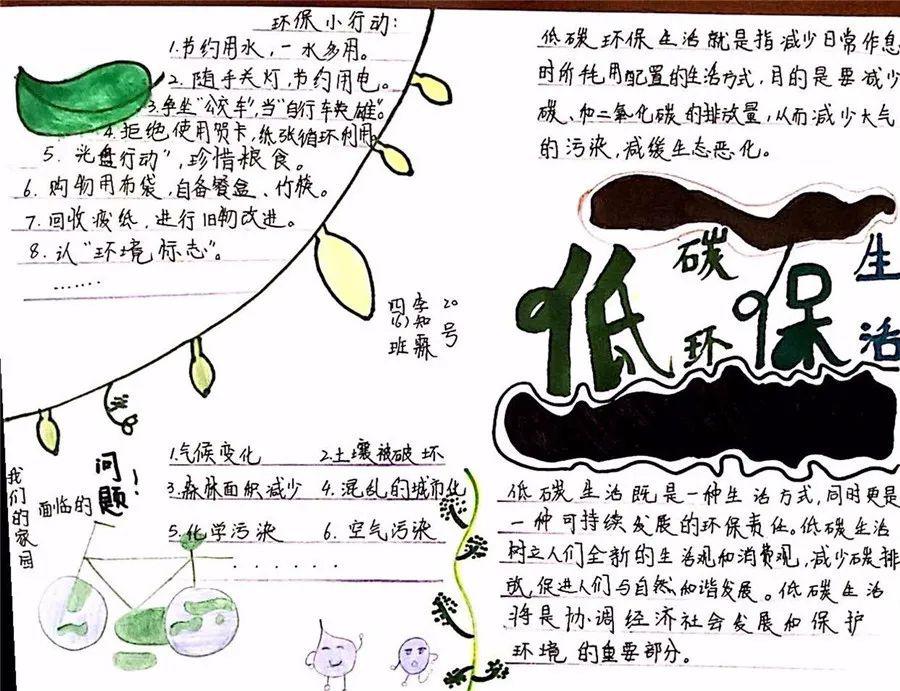 环保小行动:
1.节约用水，一水多用。
2. 随手关灯，节约用电。
3.争坐“公交车”，当“自行车英雄”。
4.拒绝使用贺卡，纸张循环利用
5. 光盘行动”，珍惜粮食。
6. 购物用布袋，自备餐盒、竹筷。
7. 回收废纸，进行旧物改进。
8. 认“环境标志”。
……
低碳环保生活就是指减少日常作息
时所耗用配置的生活方式，目的是要减少
碳、和二氧化碳的排放量，从而减少大气
的污染，减缓生态恶化。
低碳环保生活
四(6)班
20号
我们的家园
面临的问题!
1.气候变化 2.土壤被破坏
3.森林面积减少 4. 混乱的城市化
5. 化学污染 6. 空气污染
......
低碳生活既是一种生活方式，同时更是
一种可持续发展的环保责任。低碳生活
树立人们全新的生活观和消费观，减少碳排
放，促进人们与自然和谐发展。低碳生活
将是协调经济社会发展和保护
环境的重要部分。